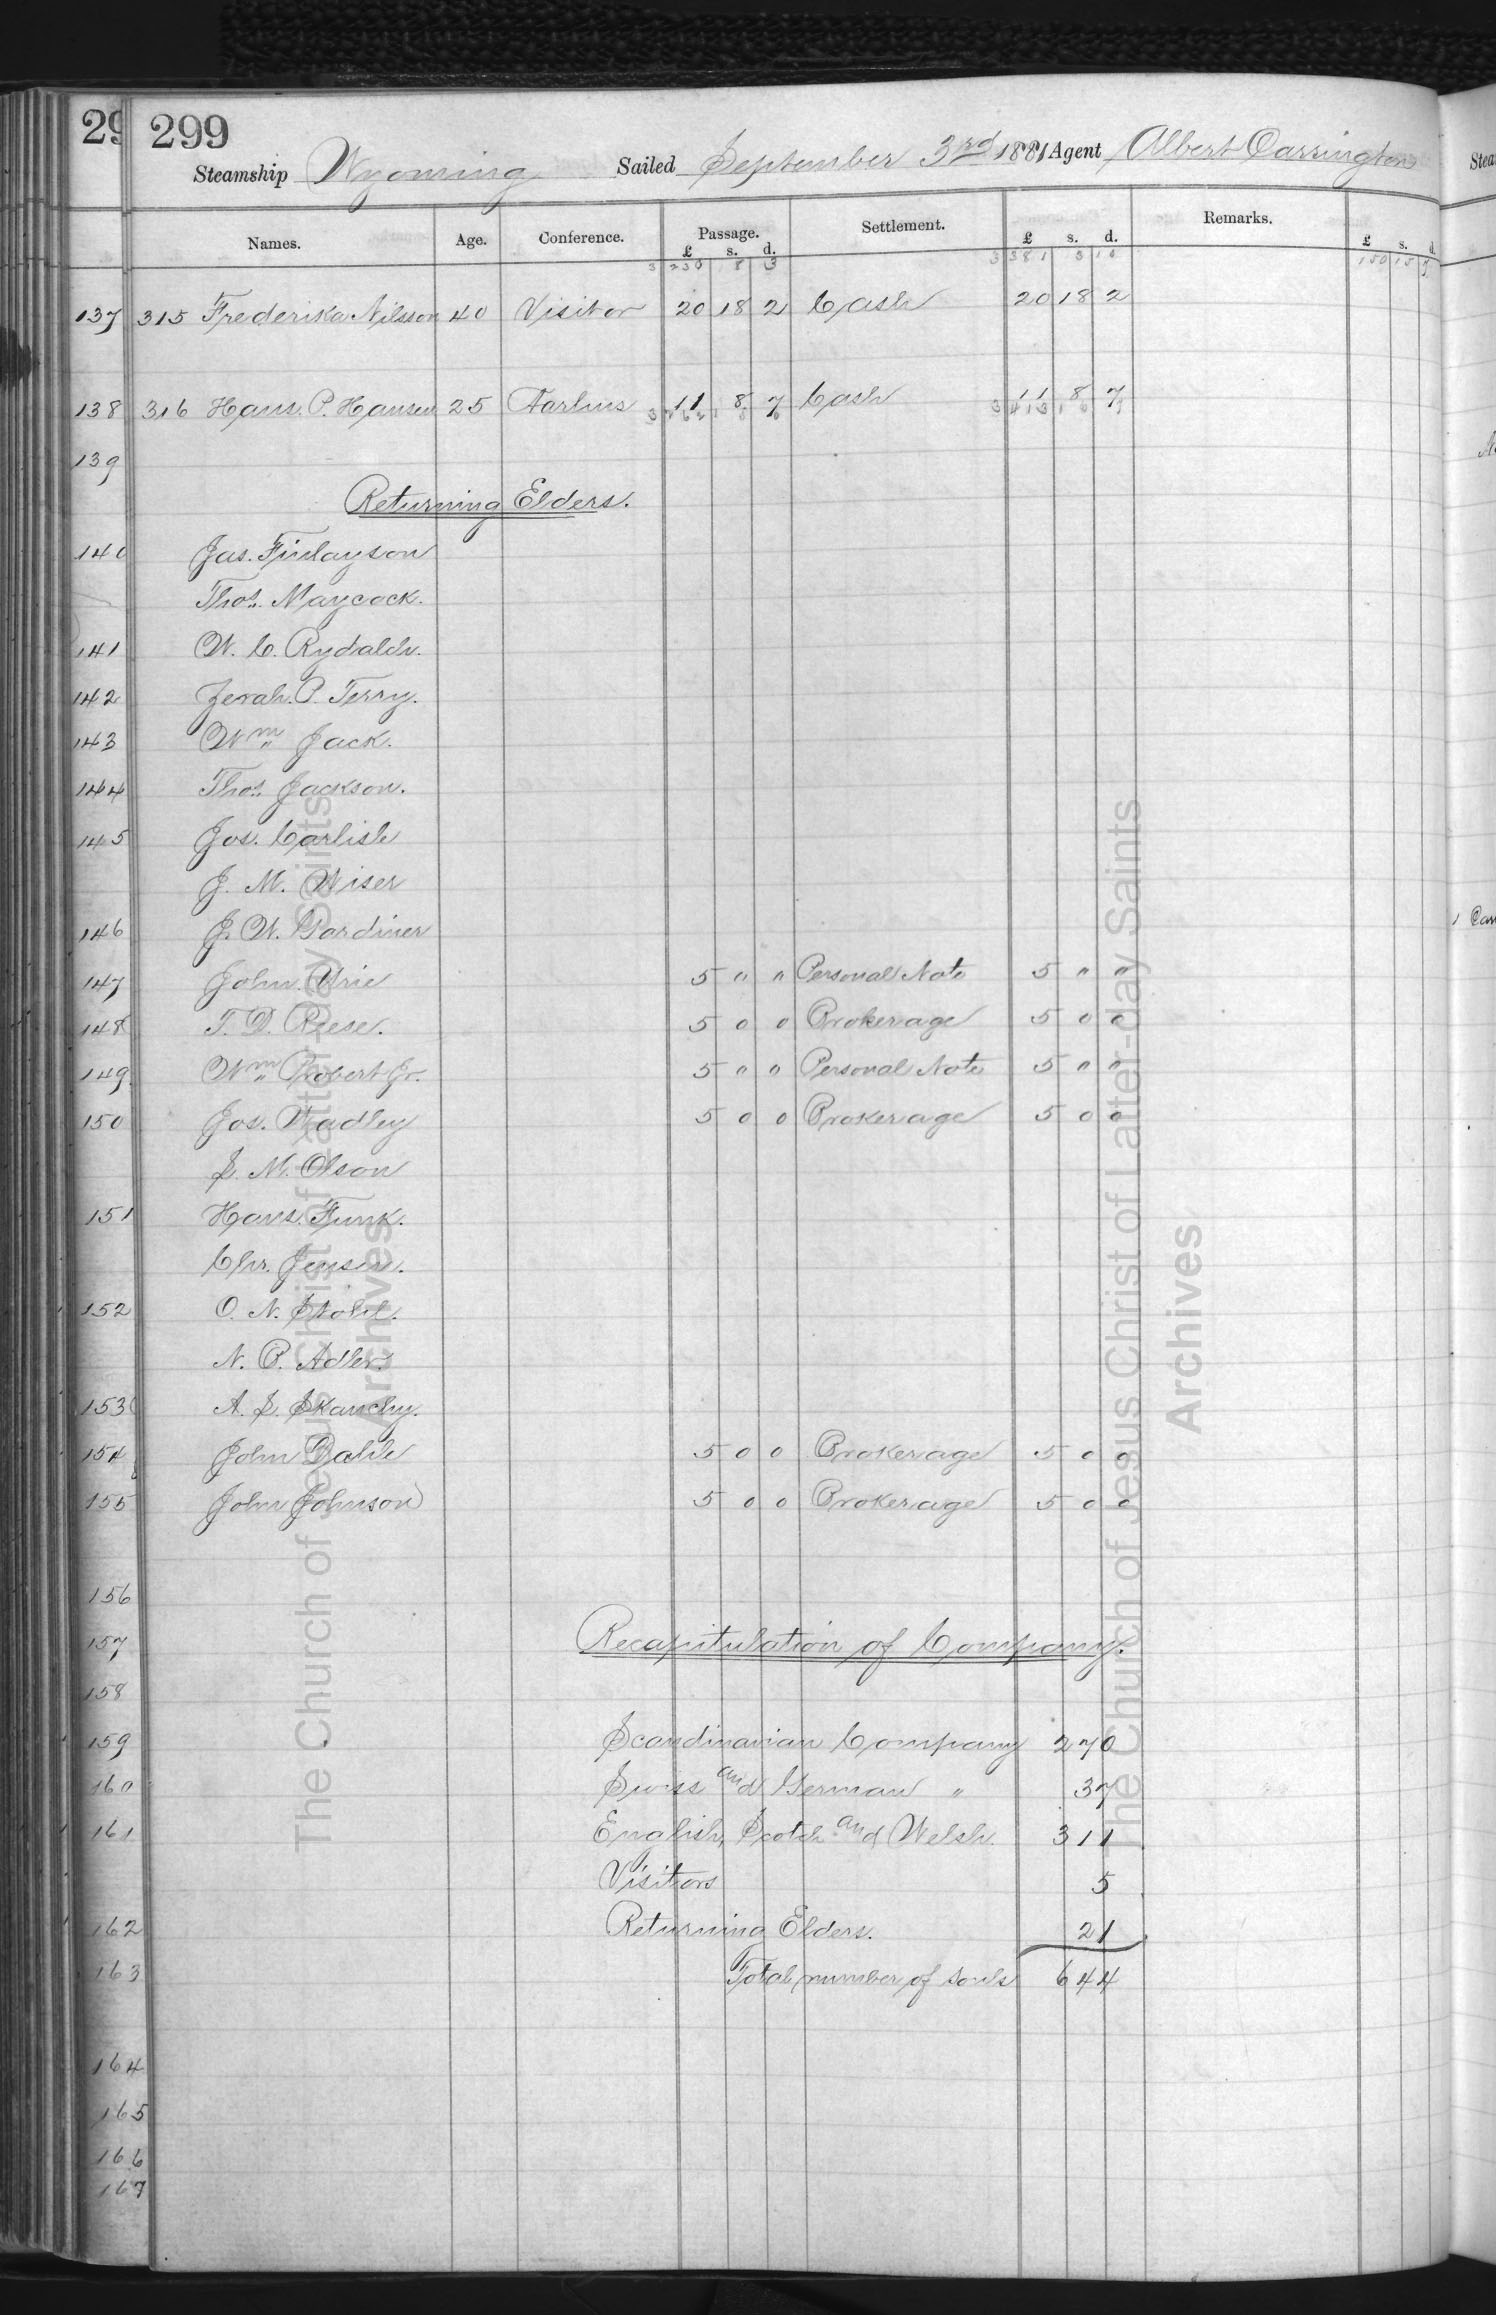 29 299
Steamship Wyoming Sailed September 3rd 1881 Agent Albert Carrington
Names. Age. Conference. Passage. Settlement. £ s. d. Remarks. £ s. d.
£ s. d.
3 230 8 3 3 381 3 10 150 15 7
137 315 Frederika Nilsson 40 Visitor 20 18 2 Cash 20 18 2
138 316 Hans. P. Hansen 25 Aarhus 11 8 7 Cash 11 8 7
139
Returning Elders.
140 Jas. Finlayson
Thos. Maycock.
141 W. C. Rydalch.
142 Zerah. P. Terry.
143 Wm Jack.
144 Thos. Jackson.
145 Jos. Carlisle
J. M. Wiser
146 J. W. Gardiner
147 John Urie 5 " " Personal Note 5 " "
148 T. D. Reese. 5 0 0 Brokerage 5 0 0
149 Wm Probert Jr. 5 " " Personal Note 5 " "
150 Jos. Wadley 5 0 0 Brokerage 5 0 0
S. M. Olson
151 Hans. Funk.
Chr. Jensen.
152 O. N. Stohl.
N. P. Adler.
153 A. S. Skanchy.
154 John Dahle 5 0 0 Brokerage 5 0 0
155 John Johnson 5 0 0 Brokerage 5 0 0
156
157 Recapitulation of Company.
158
159 Scandinavian Company 270
160 Swiss and German " 37
161 English, Scotch and Welsh. 311
Visitors 5
162 Returning Elders. 21
163 Total number of souls 644
164
165
166
167
The Church of Jesus Christ of Latter-day Saints
Archives
The Church of Jesus Christ of Latter-day Saints
Archives